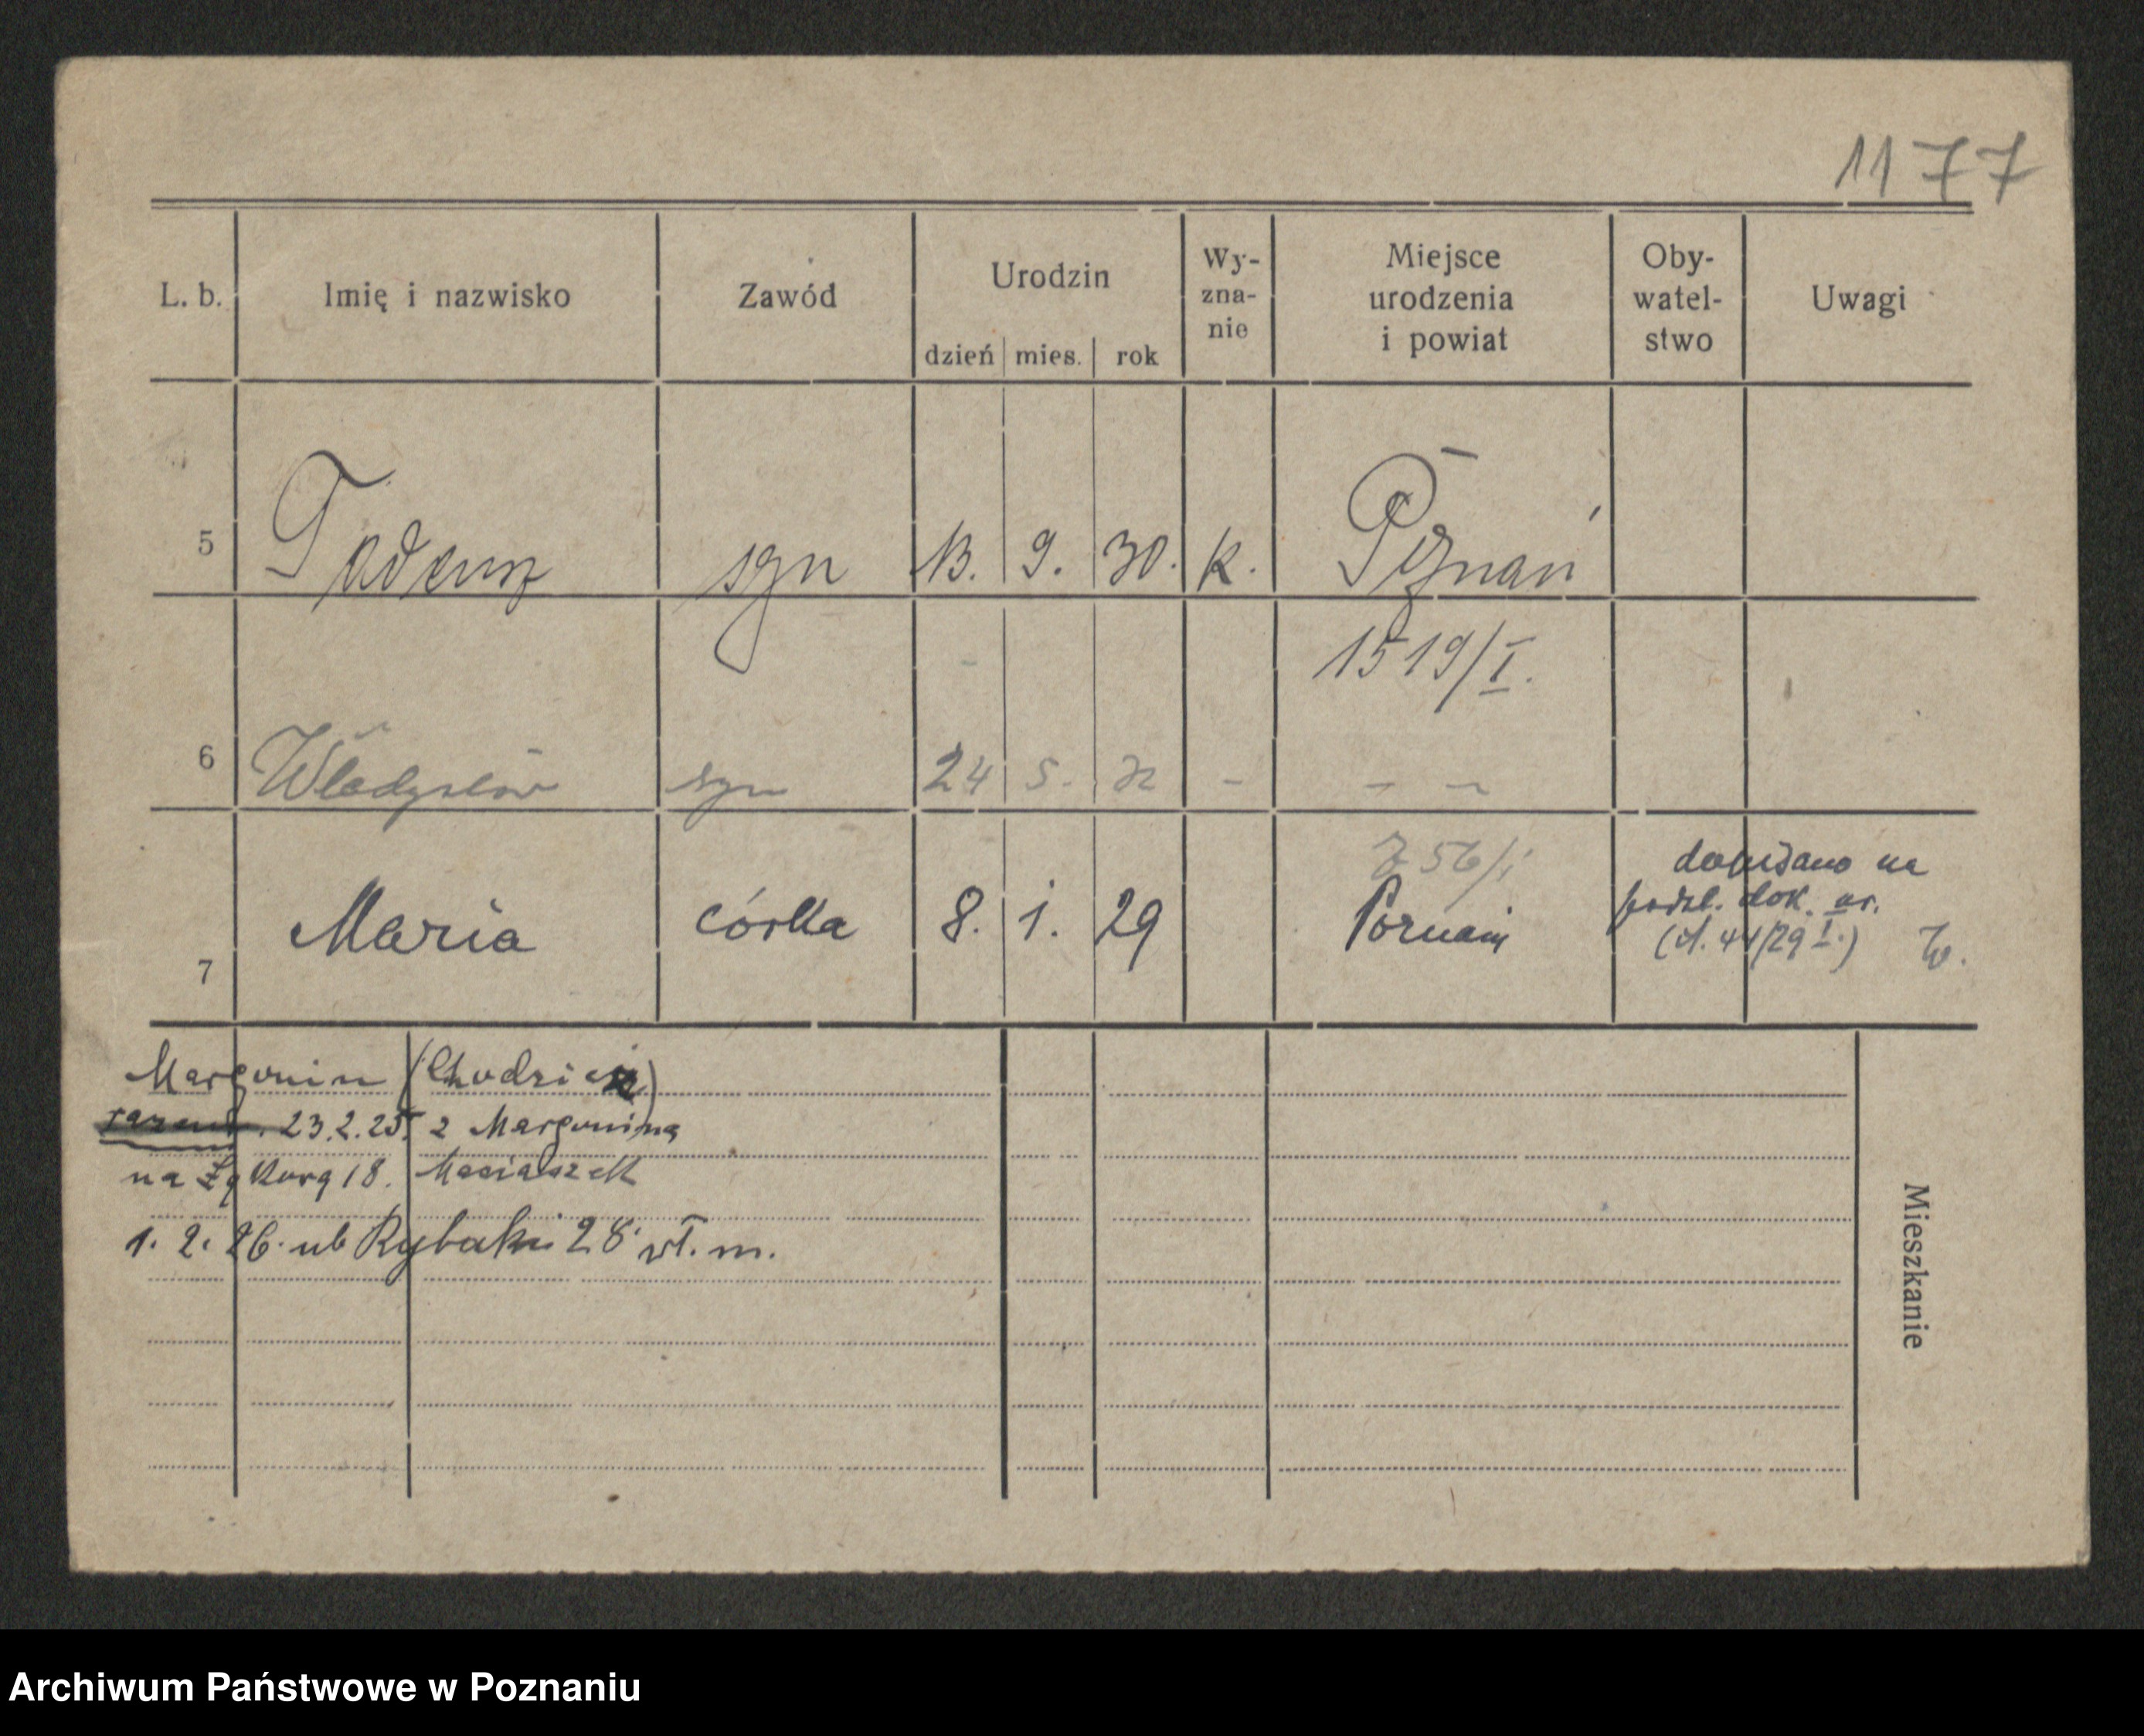 1177
L. b. Imię i nazwisko Zawód Urodzin Wy-zna-nie Miejsce urodzenia i powiat Oby-watel-stwo Uwagi
dzień mies. rok
5 Tadeusz syn 13. 9. 30. k. Poznań
1519/I.
6 Władysław syn 24 5. 32 - - -
756/I
7 Maria córka 8. 1. 29 Poznań
dopisano na
podst. dok. ur.
(44/29 I.)
Margonin (Chodzież)
23.2.25. z Margonina
na Łąkową 18. Maciaszek
1. 2. 26. ul. Rybaki 28 wł. m.
Mieszkanie
Archiwum Państwowe w Poznaniu